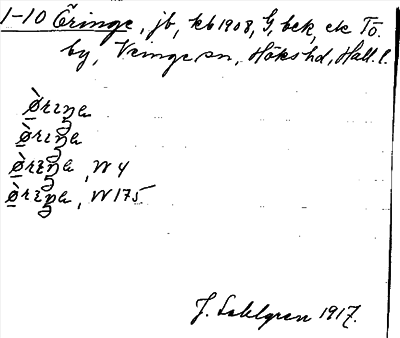 1-10 Öringe, jb, kb 1908, G, bek, ek To.
by, Veinge sn, Höks hd, Hall. l.
Ø̀riŋa
Ø̀riŋa
Ø̀riŋa, W 4
Ø̀riŋa, W 175
J. Sahlgren 1917.